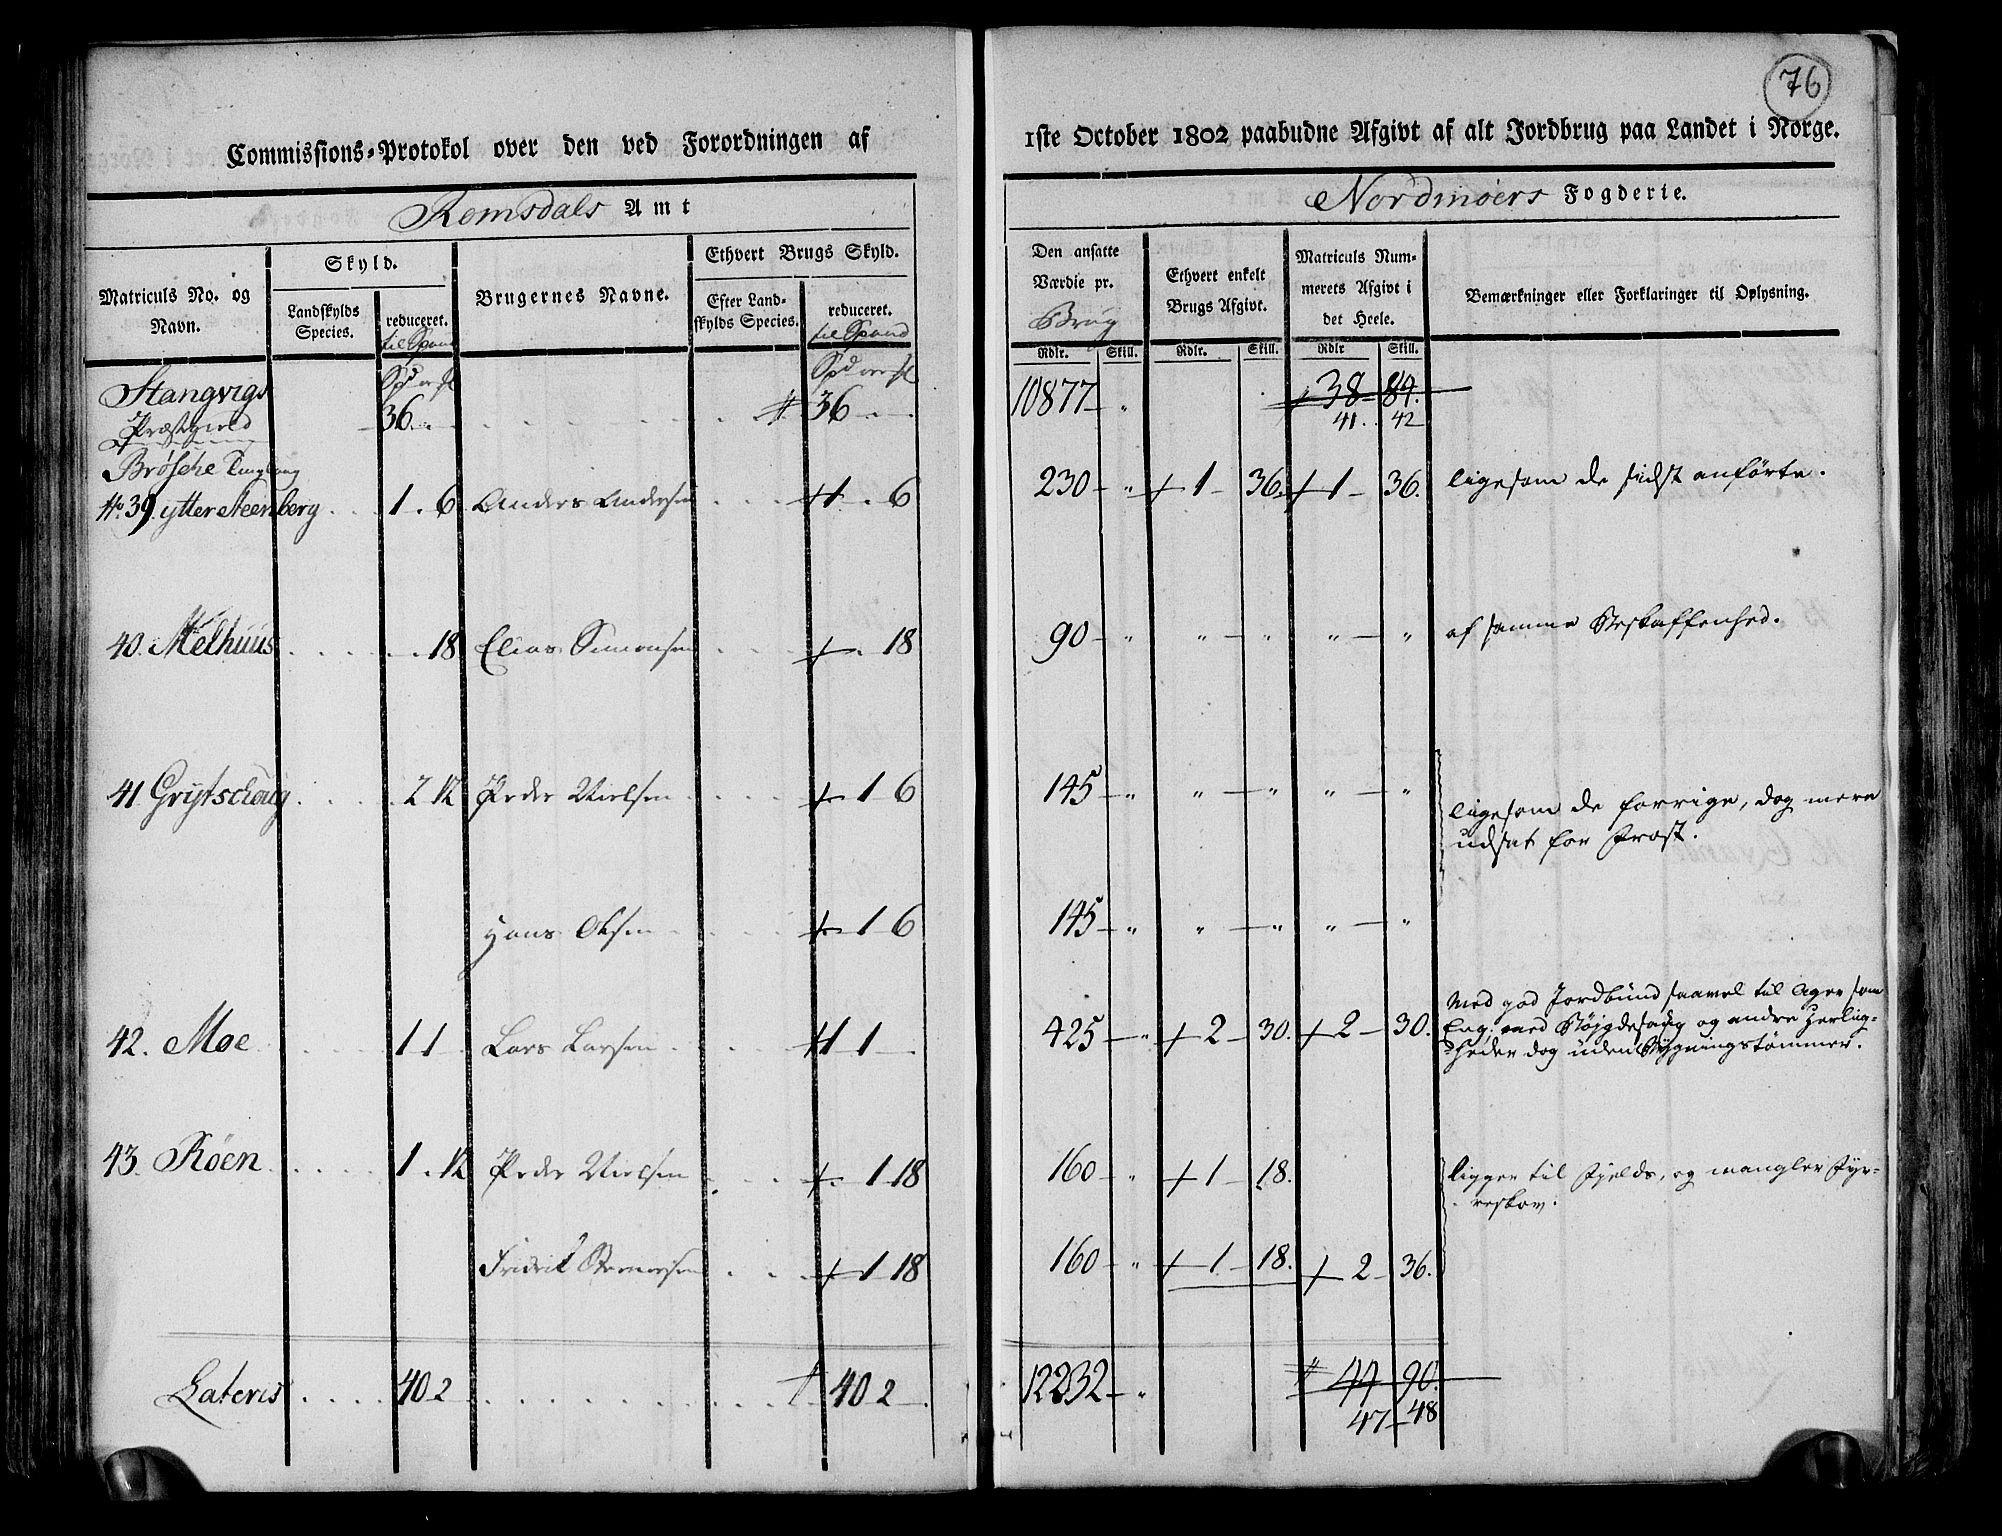 76
Commissions-Protokol over den ved Forordningen af
1ste October 1802 paabudne Afgivt af alt Jordbrug paa Landet i Norge.
Romsdals Amt
Nordmøers Fogderie.
Matriculs No. og Navn.
Skyld.
Landskylds Species.
reduceret. til Spand
Brugernes Navne.
Ethvert Brugs Skyld.
Efter Landskylds Species.
reduceret. til Spand
Den ansatte Værdie pr. Brug
Ethvert enkelt Brugs Afgivt.
Matriculs Nummerets Afgivt i det Heele.
Bemærkninger eller Forklaringer til Oplysning.
Rdlr. Skill. Rdlr. Skill. Rdlr Skill.
Stangvigs Præstegield 36 . . . 36 10877 " 38 84.
41. 42
Brøske Tinglaug
No. 39 ytter Steenberg . . 1 . 6 Anders Andersen . . . 1 . 6 230 " 1 36. 1 36. ligesom de sidst anførte.
40. Melhuus . . . . 18 Elias Simonsen . . . 18 90 " " " " " af samme Beskaffenhed.
41 Grytschoug . . . 2 12 Peder Nielsen . . . 1 6 145 " " " " " ligesom de forrige, dog mere
udsat for Frost.
Hans Olsen . . . 1 6 145 " " " " "
42. Moe . . . 1 1 Lars Larsen . . . 1 1 425 " 2 30. 2 30. Med god Jordbund saavel til Ager som
Eng, med Bøjgdesaug og andre Herlig-
heder dog uden Bygningstømmer.
43. Røen . . . 1 . 12 Peder Nielsen . . . 1 18 160 " 1 18. ligger til Fjelds, og mangler Fyr-
reskov.
Fridrik . . . 1 18 160 " 1 18. 2 36.
Lateris . . . 40 2 . . . 40 2 12232 " 44 90.
47 48